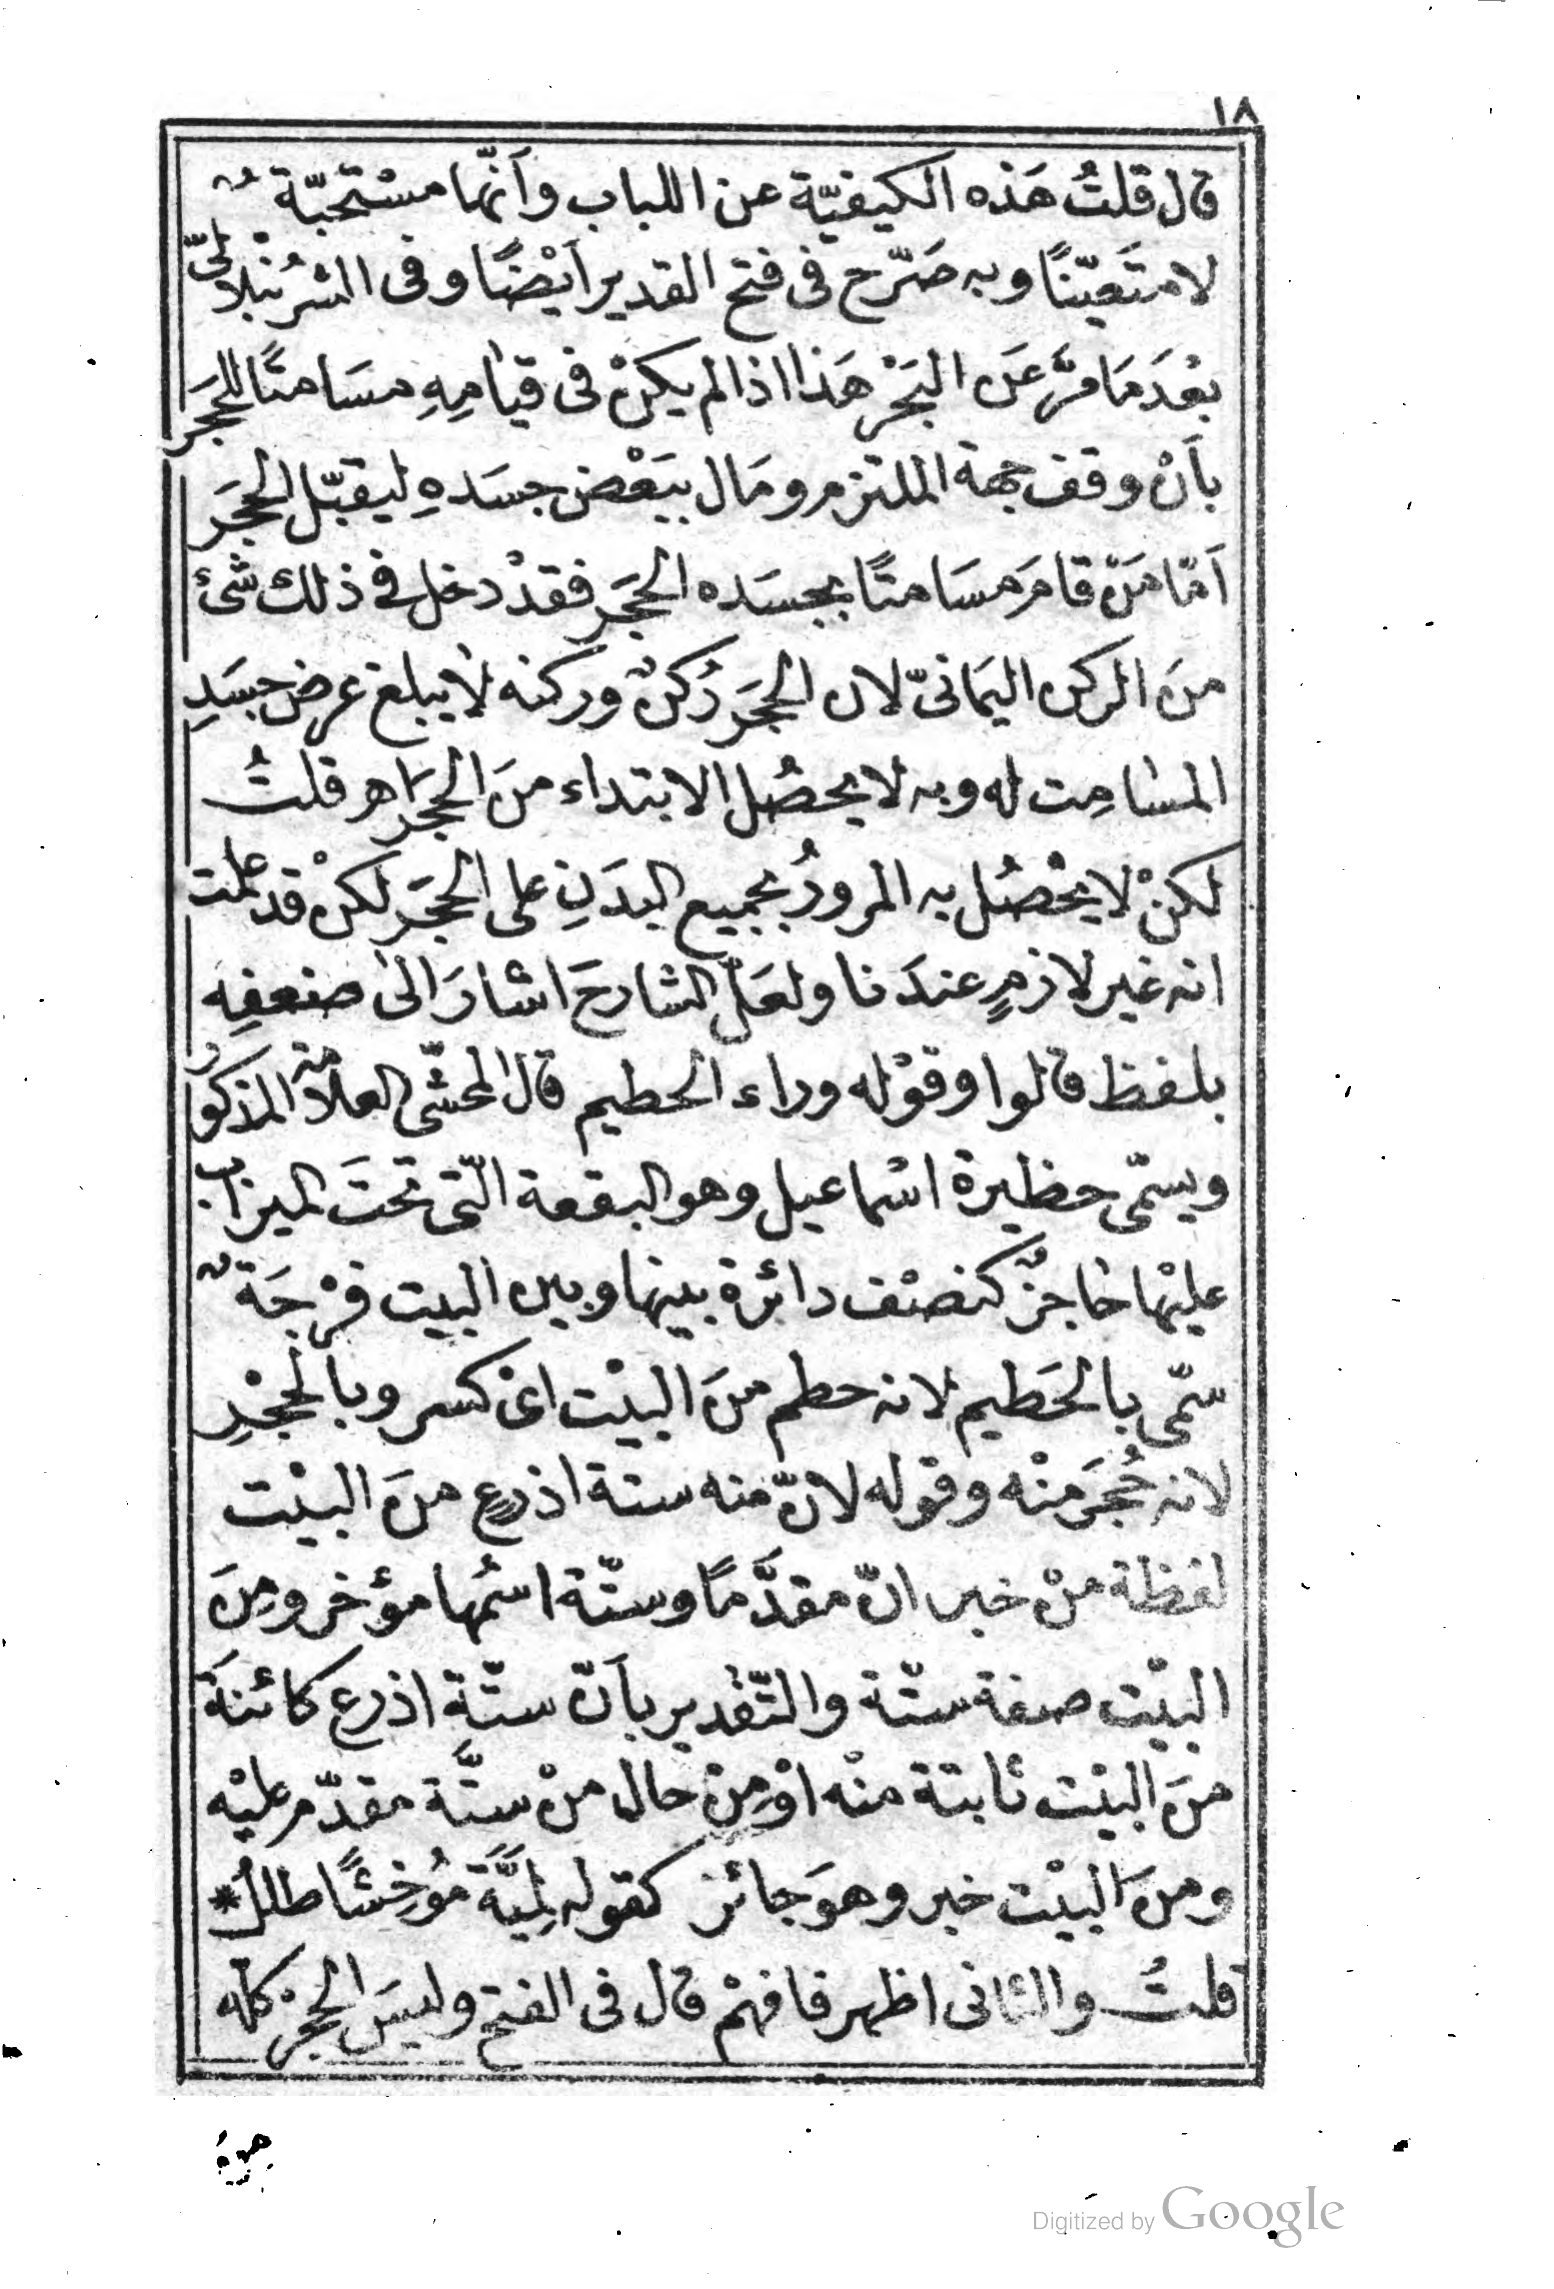 ١٨
قال قلتُ هَذه الكيفيّة عن اللباب وأنّها مسْتحبّةٌ
لا متَعيّنًا وبه صَرّح فى فتح القدير اَيْضًا وفى الشرُنْبلالىّ
بعْدَ مَا مرَّ عَن البَحْر هَذا اذا لم يكنْ فى قيامِهِ مسَامتًا للحَجَر
بأنْ وقف جهة الملتزم ومَال ببَعْض جسَدهِ ليقبّل الحجَر
اَمّا مَنّ قامَ مسَامتًا بجسَده الحجَر فقدْ دخل فى ذلك شَىْءٌ
منَ الركن اليَمانىّ لان الحجَر رُكنٌ وركنه لا يبلغ عرض جسَدِ
المسامِت له وبه لا يحصُل الابتداء منَ الحجَر اهـ قلتُ
لكنْ لا يحْصُل به المرورُ بجميع البدَنِ على الحجَر لكنْ قد علمت
انه غير لازمٍ عندَنا ولعَلّ الشارحَ اشارَ الى ضعفِه
بلفظ قالوا وقوْله وراء الحطيم قال المحشّى العلامة المذكور
ويسمّى حظيرة اسْماعيل وهو البقعة الّتى تحتَ الميزاب
عليْها حاجزٌ كنصْف دائرة بينها وبين البيت فرْجَةٌ
سّمى بالحَطيم لانه حطم منَ البيْت اىْ كسر وبالحجْرِ
لانه حُجرَ منْه وقوله لانّ منه ستة اذرع منَ البيْت
لفظة منْ خبر انّ مقدَّمًا وستّة اسْمُها مؤخر ومِنَ
البيّت صفة ستّة والتّقدير بأنّ ستّة اذرع كائنَة
منَ البيْت ثابتة منْه اوْ مِنْ حال منْ ستَّة مقدّم عليْه
ومنَ البيْت خبر وهوَ جائز كقوله لِميَّةَ مُوْحِشًا طللُ*
قلتُ والثانى اظهر فافهمْ قال فى الفتح وليسَ الحجْر كله
Digitized by Google